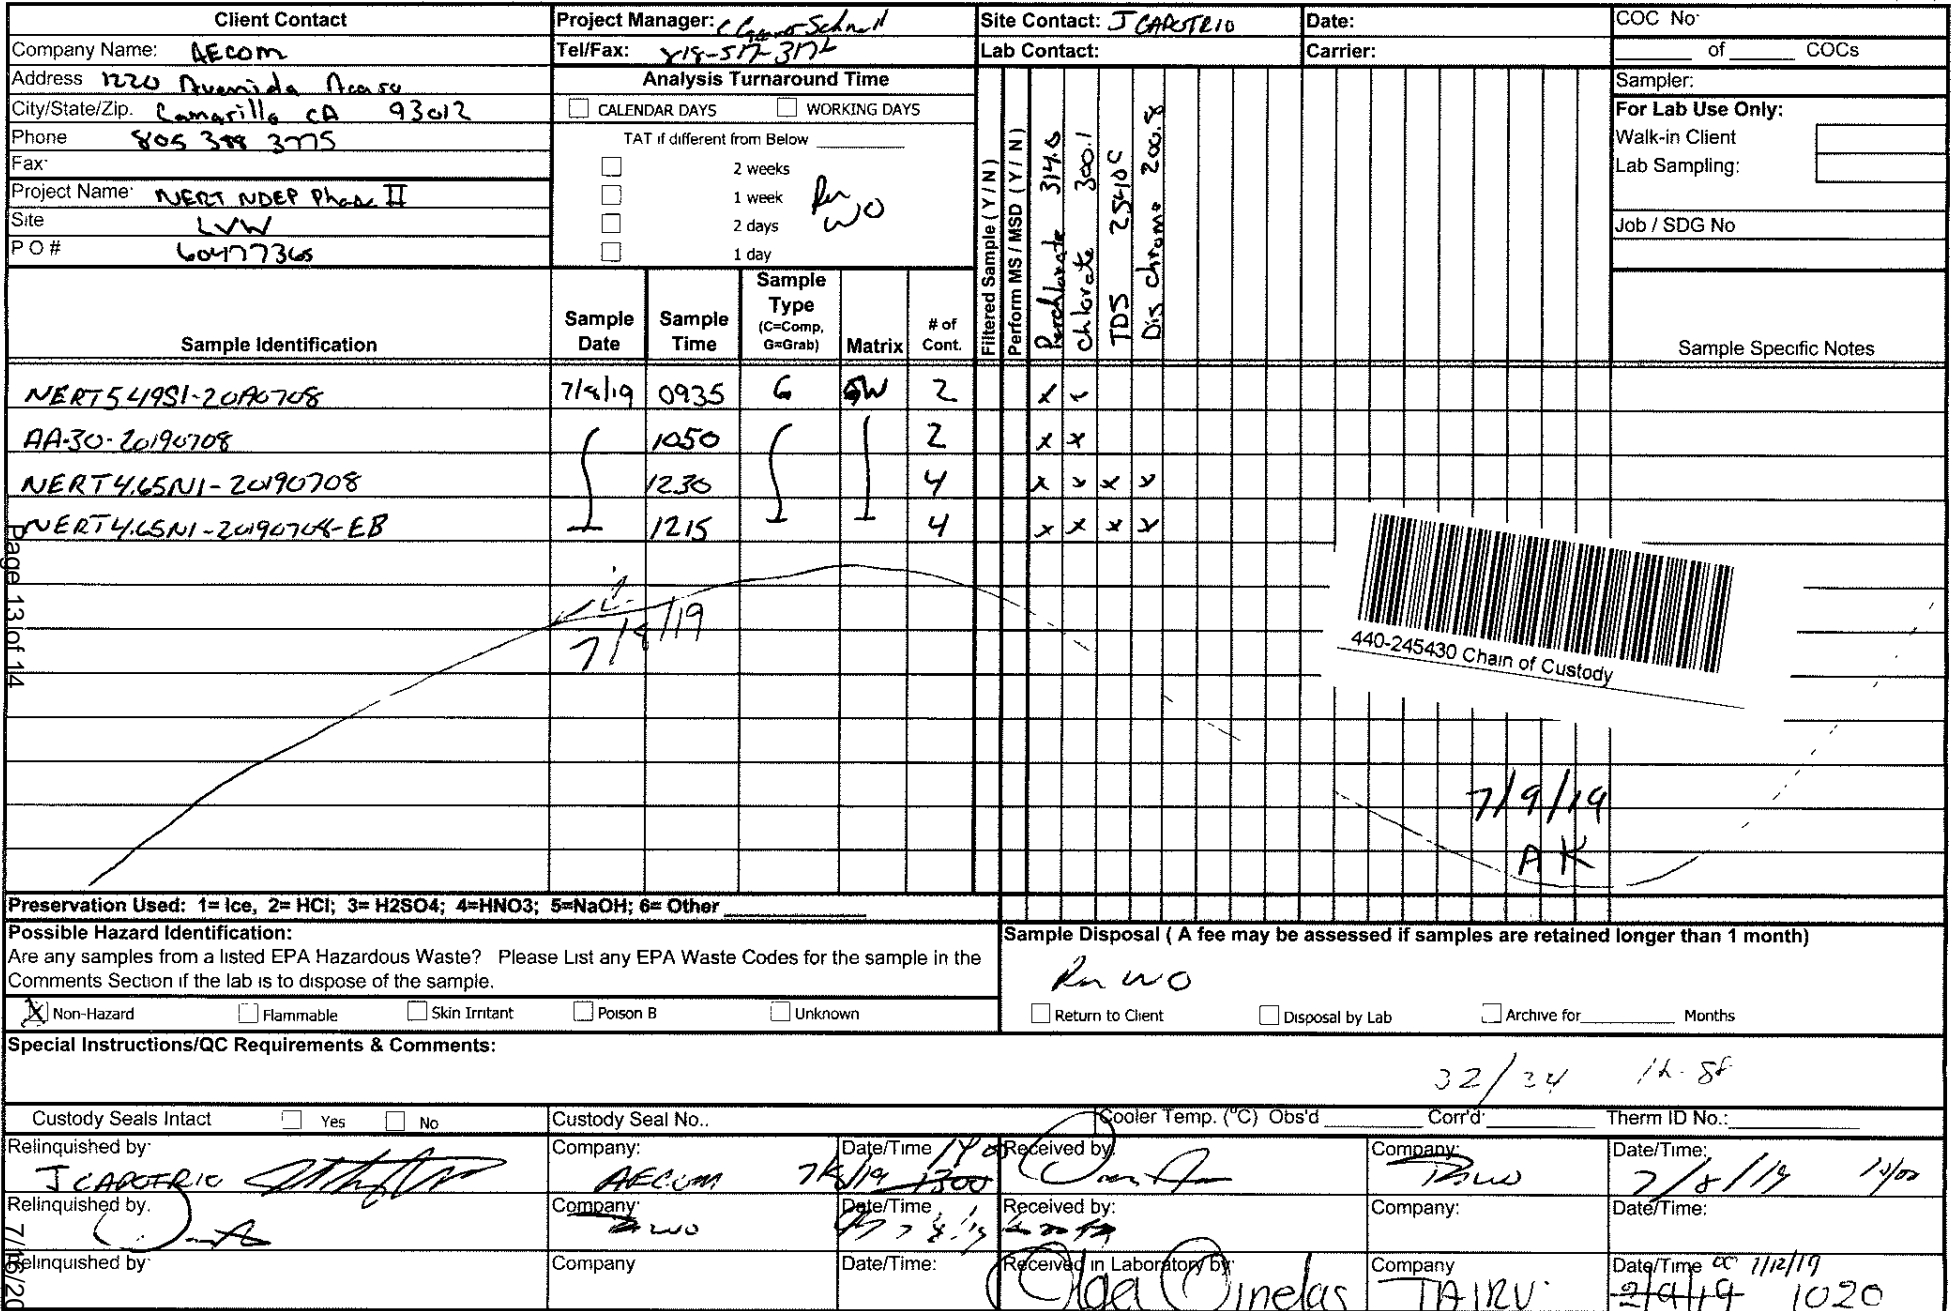 Client Contact
Company Name: AECOM
Address 1220 Avenida Acaso
City/State/Zip. Camarillo CA 93012
Phone 805 388 3775
Fax:
Project Name: NERT NDEP Phase II
Site LVW
P O # 60477365
Project Manager:
Tel/Fax: 818-517-3172
Analysis Turnaround Time
CALENDAR DAYS WORKING DAYS
TAT if different from Below
2 weeks
1 week
2 days
1 day
Per WO
Site Contact: J CAPOTRIO
Lab Contact:
Date:
Carrier:
COC No:
of COCs
Sampler:
For Lab Use Only:
Walk-in Client
Lab Sampling:
Job / SDG No
Filtered Sample ( Y / N )
Perform MS / MSD ( Y / N )
Perchlorate 314.0
Chlorate 300.1
TDS 2540C
Dis chrome 200.8
Sample Identification
Sample Date
Sample Time
Sample Type (C=Comp, G=Grab)
Matrix
# of Cont.
Sample Specific Notes
7/8/19 0935 G 2 x x
AA-30-20190708 1050 2 x x
NERT4.65N1-20190708 1230 4 x x x x
NERT4.65N1-20190708-EB 1215 4 x x x x
7/8/19
440-245430 Chain of Custody
7/9/19
AK
Page 13 of 14
Preservation Used: 1= Ice, 2= HCl; 3= H2SO4; 4=HNO3; 5=NaOH; 6= Other
Possible Hazard Identification:
Are any samples from a listed EPA Hazardous Waste? Please List any EPA Waste Codes for the sample in the
Comments Section if the lab is to dispose of the sample.
X Non-Hazard Flammable Skin Irritant Poison B Unknown
Sample Disposal ( A fee may be assessed if samples are retained longer than 1 month)
Per WO
Return to Client Disposal by Lab Archive for Months
Special Instructions/QC Requirements & Comments:
32/34
Custody Seals Intact Yes No
Custody Seal No..
Cooler Temp. (°C) Obs'd Corr'd: Therm ID No.:
Relinquished by: J CAPOTRIO
Company: AECOM
Date/Time 7/8/19 1300
Received by:
Company:
Date/Time: 7/8/19
Relinquished by.
Company:
Date/Time:
Received by:
Company:
Date/Time:
Relinquished by:
Company
Date/Time:
Received in Laboratory by: Olga Ornelas
Company TAIRV
Date/Time OC 7/12/19
1020